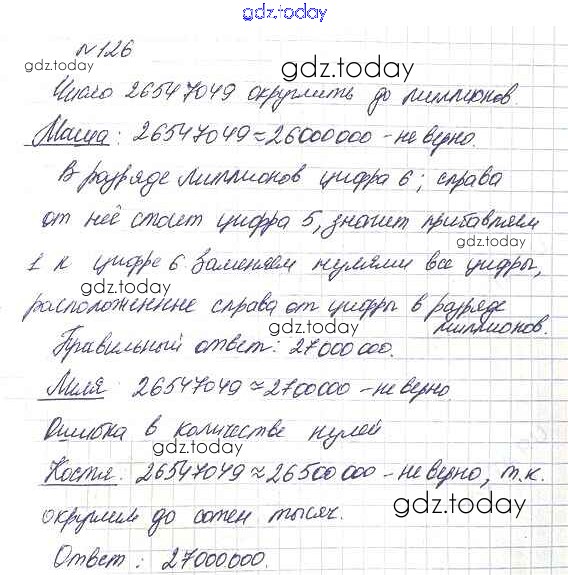 gdz.today
№126
gdz.today
gdz.today
Число 26547049 округлить до миллионов.
Маша: 26547049≈26000000 - не верно.
В разряде миллионов цифра 6; справа
от неё стоит цифра 5, значит прибавляем
gdz.today
1 к цифре 6 Заменяем нулями все цифры,
расположенные справа от цифры в разряде
миллионов.
gdz.today
Правильный ответ: 27000000.
Миля: 26547049≈2700000 - не верно.
Ошибка в количестве нулей
gdz.today
Костя: 26547049≈26500000 - не верно, т.к.
gdz.today
округлили до сотен тысяч.
Ответ: 27000000.
gdz.today